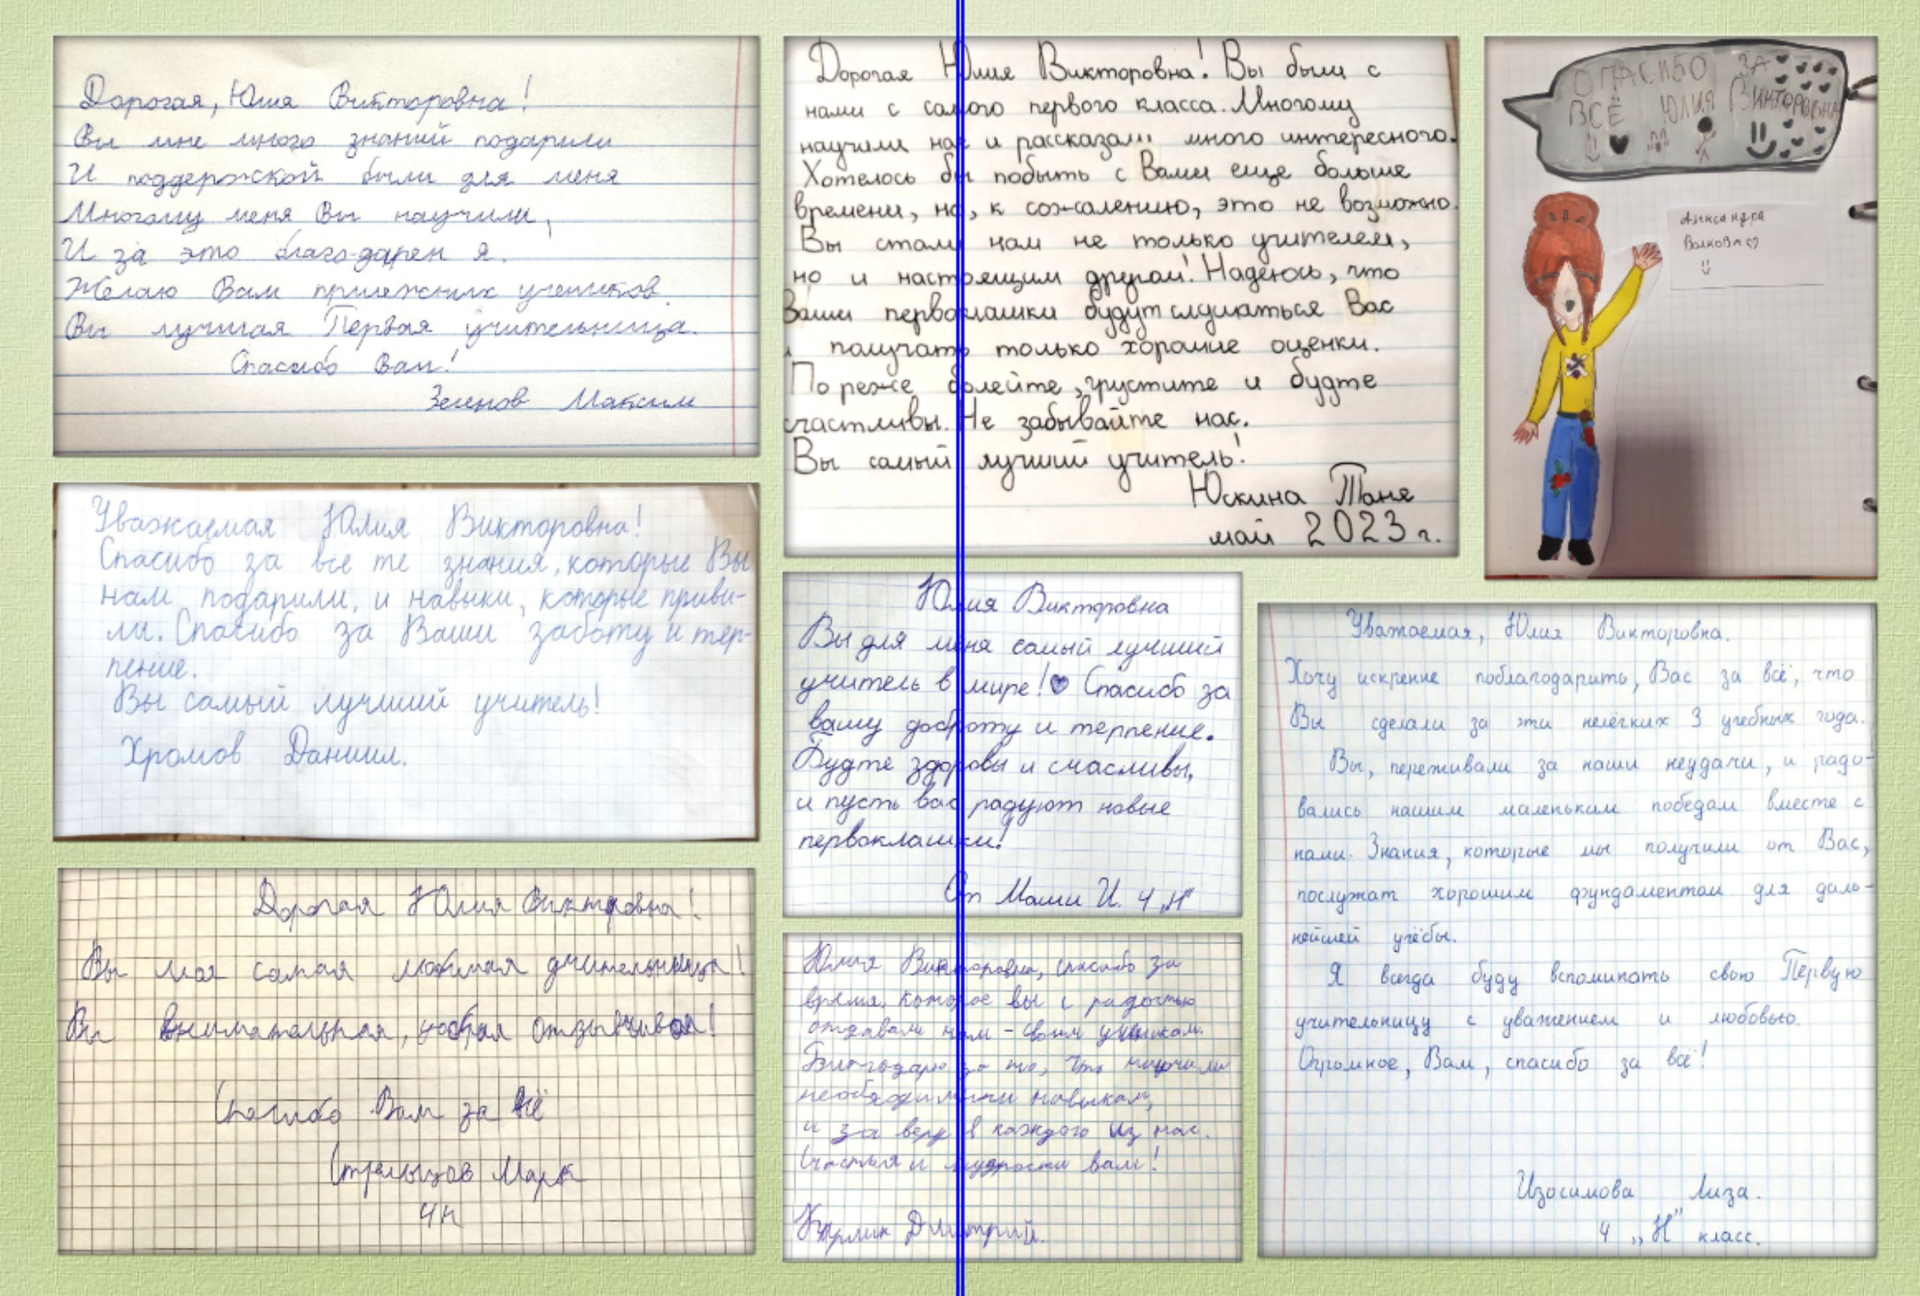 Дорогая, Юлия Викторовна!
Вы мне много знаний подарили
И поддержской были для меня
Многому меня Вы научили,
И за это благодарен я.
Желаю Вам прилежних учеников.
Вы лучшая Первая учительница.
Спасибо Вам!
Зеленов Максим
Уважаемая Юлия Викторовна!
Спасибо за все те знания, которые Вы
нам подарили, и навыки, которые приви-
ли. Спасибо за Ваши заботу и тер-
пение.
Вы самый лучший учитель!
Хромов Даниил.
Дорогая Юлия Викторовна!
Вы моя самая любимая учительница!
Вы внимательная, добрая отзывчивая!
Спасибо Вам за всё
Стрельцов Марк
4н
Дорогая Юлия Викторовна! Вы были с
нами с самого первого класса. Многому
научили нас и рассказали много интересного.
Хотелось бы побыть с Вами еще больше
времени, но, к сожалению, это не возможно.
Вы стали нам не только учителем,
но и настоящим другом! Надеюсь, что
Ваши первоклашки будут слушаться Вас
и получать только хорошие оценки.
По реже болейте, грустите и будте
счастливы. Не забывайте нас.
Вы самый лучший учитель!
Юскина Таня
май 2023 г.
Юлия Викторовна
Вы для меня самый лучший
учитель в мире! Спасибо за
вашу доброту и терпение.
Будте здоровы и счасливы,
и пусть вас радуют новые
первоклашки!
От Маши И. 4 „Н"
Юлия Викторовна, спасибо за
время, которое вы с радостью
отдавали нам - своим ученикам.
Благодарю за то, что научили
необходимыми навыкам,
и за веру в каждого из нас.
Счастья и мудрости вам!
Дмитрий.
СПАСИБО ЗА
ВСЁ ЮЛИЯ ВИКТОРОВНА
Александра
Волкова
Уважаемая, Юлия Викторовна.
Хочу искренне поблагодарить, Вас за всё, что
Вы сделали за эти нелёгких 3 учебных года.
Вы, переживали за наши неудачи, и радо-
вались нашим маленьким победам вместе с
нами. Знания, которые мы получили от Вас,
послужат хорошим фундаментом для даль-
нейшей учёбы.
Я всегда буду вспоминать свою Первую
учительницу с уважением и любовью.
Огромное, Вам, спасибо за всё!
Изосимова Лиза.
4 „Н" класс.